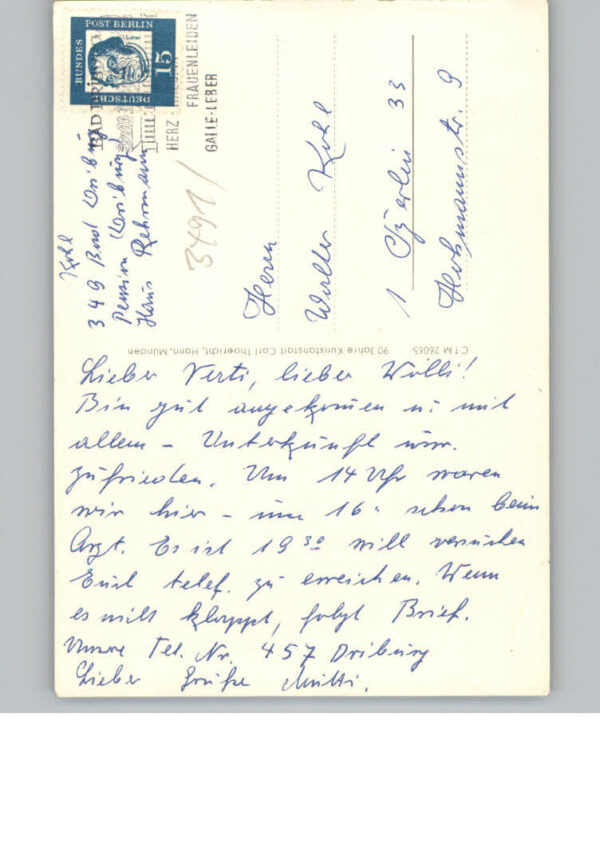 DEUTSCHE
BUNDES
POST BERLIN
15
Luther
BAD
HERZ
FRAUENLEIDEN
GALLE-LEBER
Kohl
349 Bad Driburg
Pension Driburg
Haus Rehrmann
3491/
Herrn
Walter Kohl
1 Berlin 33
9
CTM 26065 90 Jahre Kunstanstalt Carl Thoericht, Hann. Münden
Lieber Verti, lieber Willi!
Bin gut angekommen u. mit
allem – Unterkunft usw.
zufrieden. Um 14 Uhr waren
wir hier – um 16 schon beim
Arzt. Es ist 19 30 will versuchen
Euch telef. zu erreichen. Wenn
es nicht klappt, folgt Brief.
Unsere Tel. Nr. 457 Driburg
Lieber Grüße Mutti.